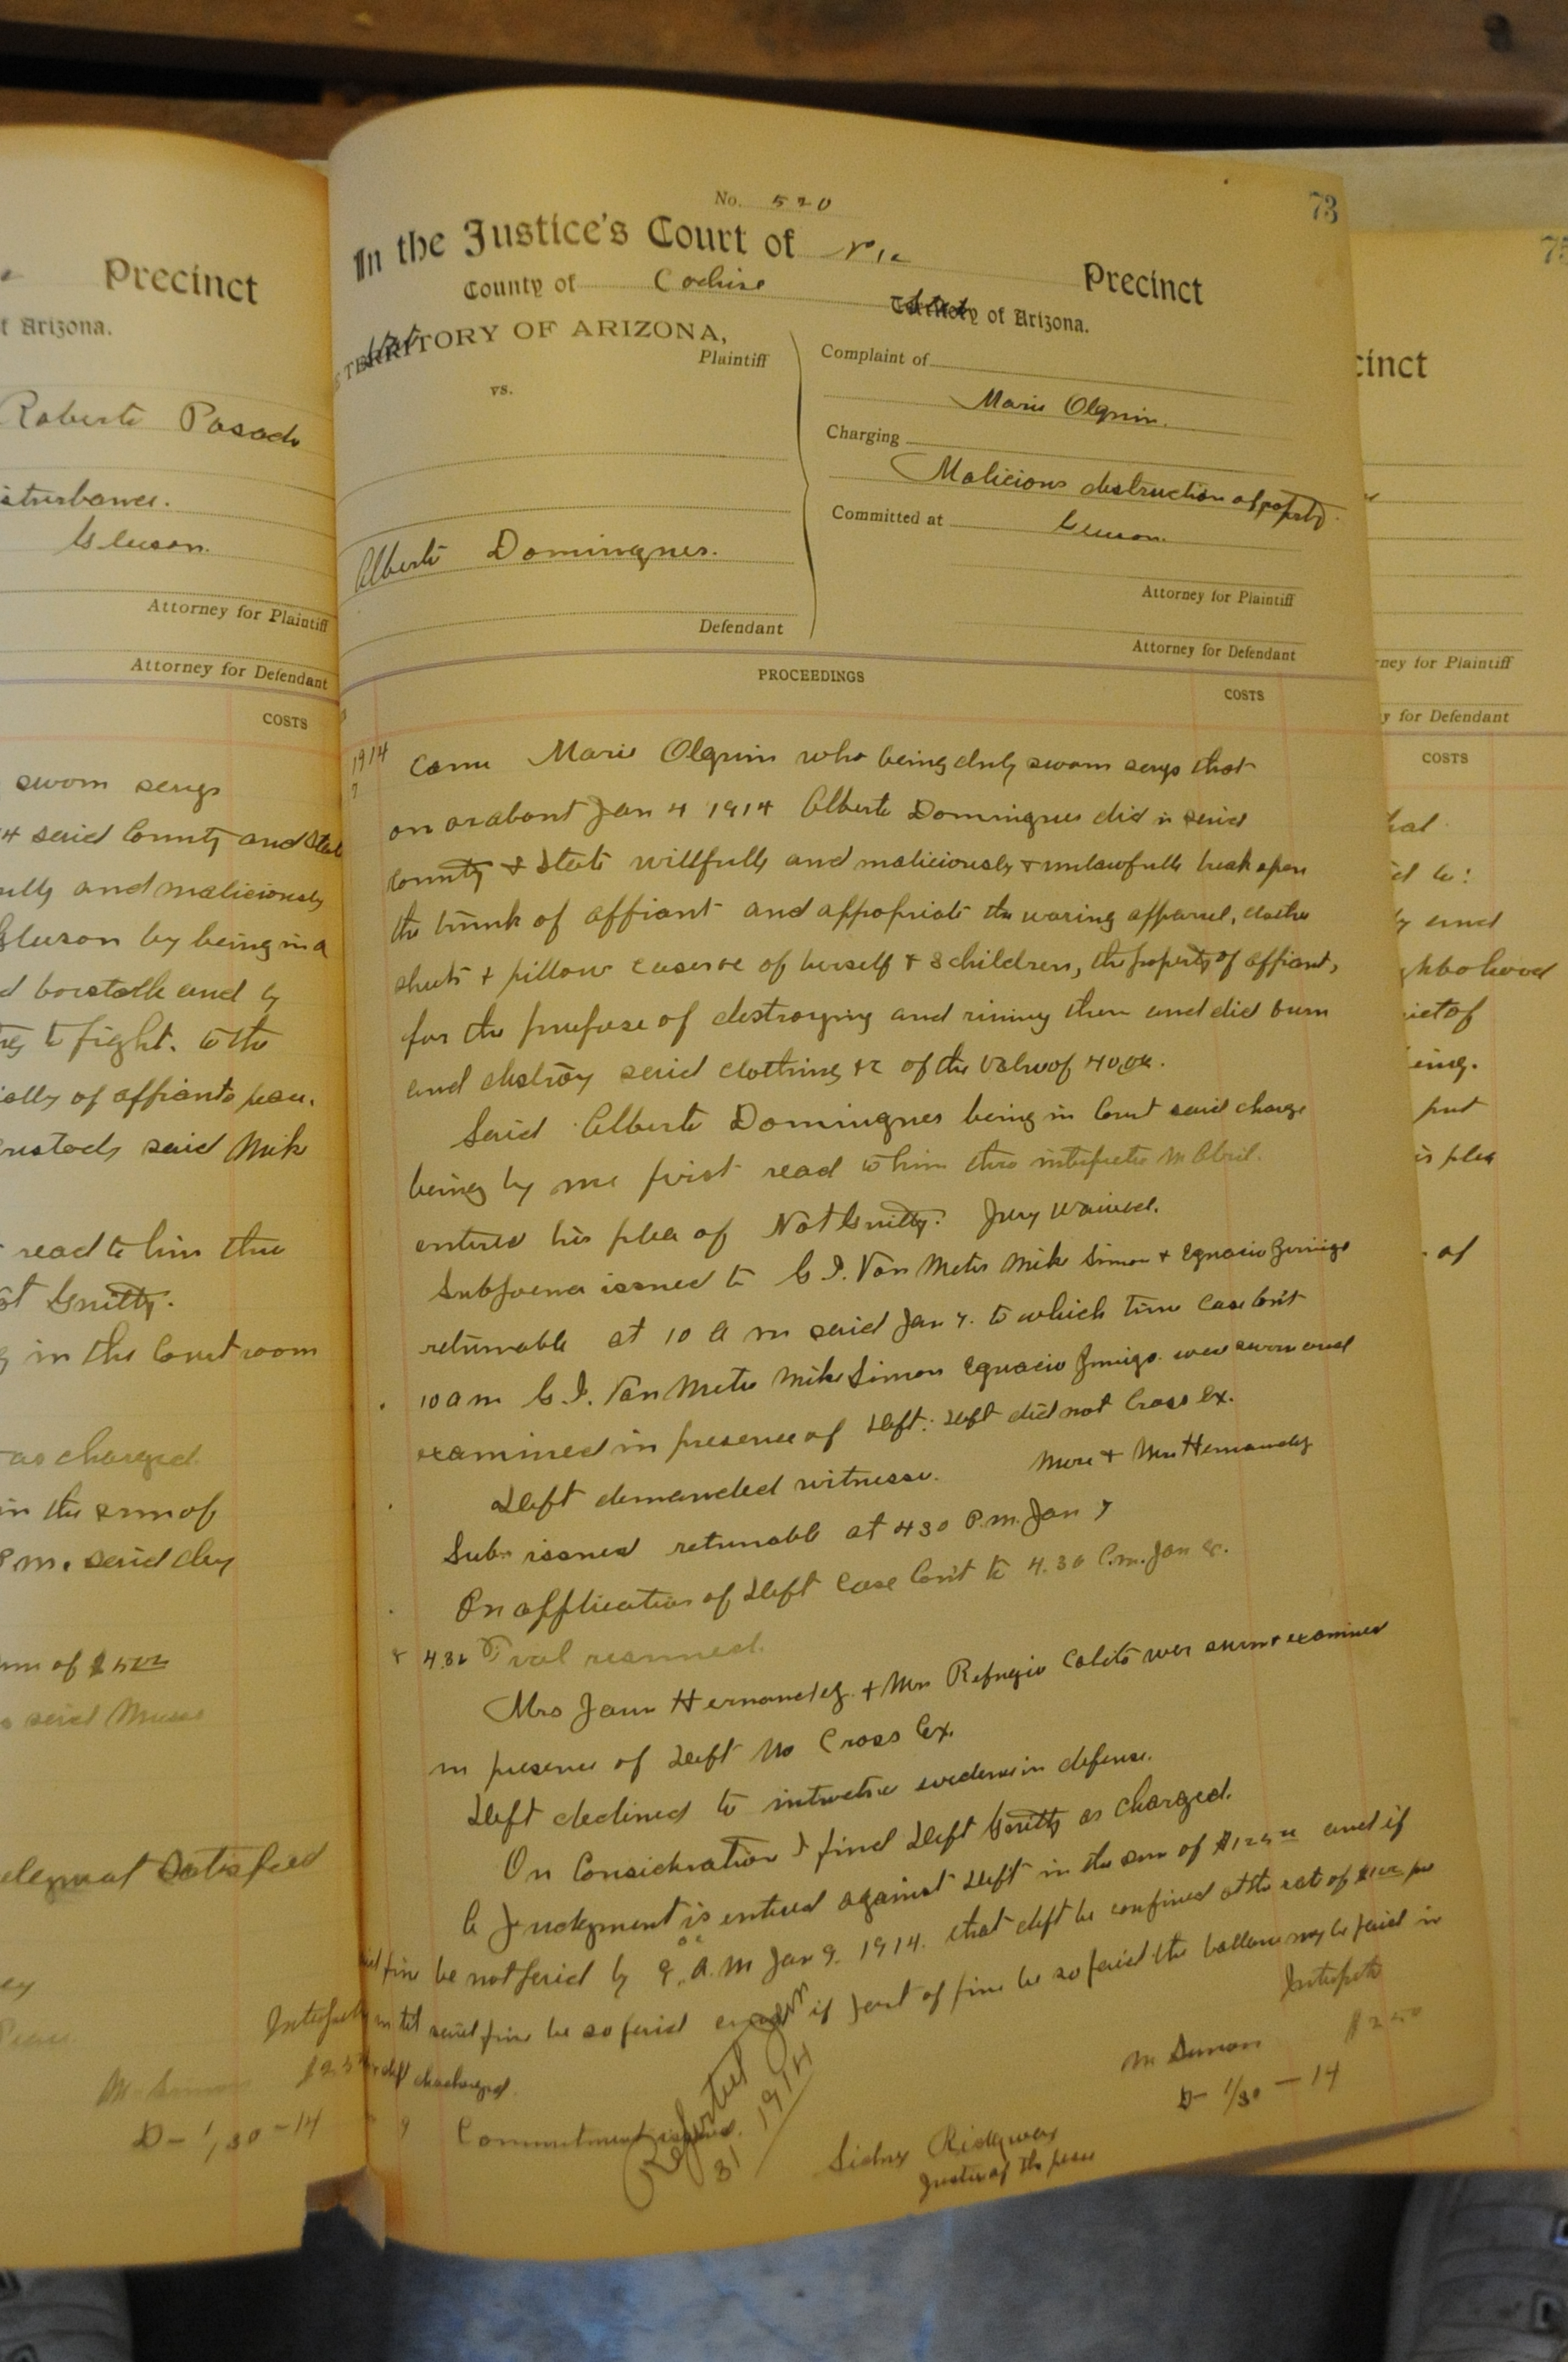 Precinct
t Arizona.
Roberto Posada
isturbance.
Gleeson.
Attorney for Plaintiff
Attorney for Defendant
COSTS
sworn says
14 said County and State
ully and maliciously
Gleeson by being in a
and by
to fight. to the
ially of affiants peace.
custody said Mike
read to him thru
ot Guilty.
in the Court room
as charged
in the sum of
P.m. said day
sum of $5.00
said
Satisfied
Interpreter
M. Simon $2.50
D- 1/30 -14
No. 520
73
In the Justice's Court of No 12 Precinct
County of Cochise State Territory of Arizona.
State TERRITORY OF ARIZONA,
Plaintiff
vs.
Alberto Domingues.
Defendant
Complaint of
Marie Olguin.
Charging
Malicious destruction of property
Committed at Gleeson.
Attorney for Plaintiff
Attorney for Defendant
PROCEEDINGS
COSTS
1914
7
Came Marie Olguin who being duly sworn says that
on or about Jan 4 1914 Alberto Domingues did in said
County & State willfully and maliciously & unlawfully break open
the trunk of affiant and appopriate the waring apparrel, clothes
sheets & pillow cases &c of herself & 8 children, the property of affiant,
for the purpose of destroying and rining them and did burn
and destroy said clothing &c of the value of 40.00.
Said Alberto Domingues being in Court said charge
being by me first read to him thru interpreter M Abril.
entered his plea of Not Guilty. Jury waived.
Subpoena issued to G. I. Van Meter Mike Simon & Egnacio Zuniga
returnable at 10 a m said Jan 7. to which time case Con't
10 am G. I. Van Meter Mike Simon Egnacio Zuniga were sworn and
examined in presence of Deft. Deft did not Cross Ex.
Deft demanded witnesses. & Mrs Hernandez
Sub- issued returnable at 430 P.m. Jan 7
On application of Deft Case Con't to 4.30 P.m. Jan 8.
8 4.30 Trial resumed.
Mrs Hernandez & Mrs Refugio were sworn & examined
in presence of Deft No Cross Ex.
Deft declined to introduce evidence in defense.
On Consideration I find Deft Guilty as charged.
& Judgment is entered against Deft in the sum of $125.00 and if
said fine be not paid by 9. A.M Jan 9. 1914. that deft be confined at the rate of $1.00 per
until said fine be so paid if part of fine be so paid the ballance may be paid in
deft discharged.
9 Commitment issued.
Reported Jan
31 1914
Interpreter
M Simon $2.50
D- 1/30 - 14
Sidney Ridgway
Justice of the peace
75
cinct
Attorney for Plaintiff
y for Defendant
COSTS
hat
y and
ghbohood
iet of
being.
put
is plea
of